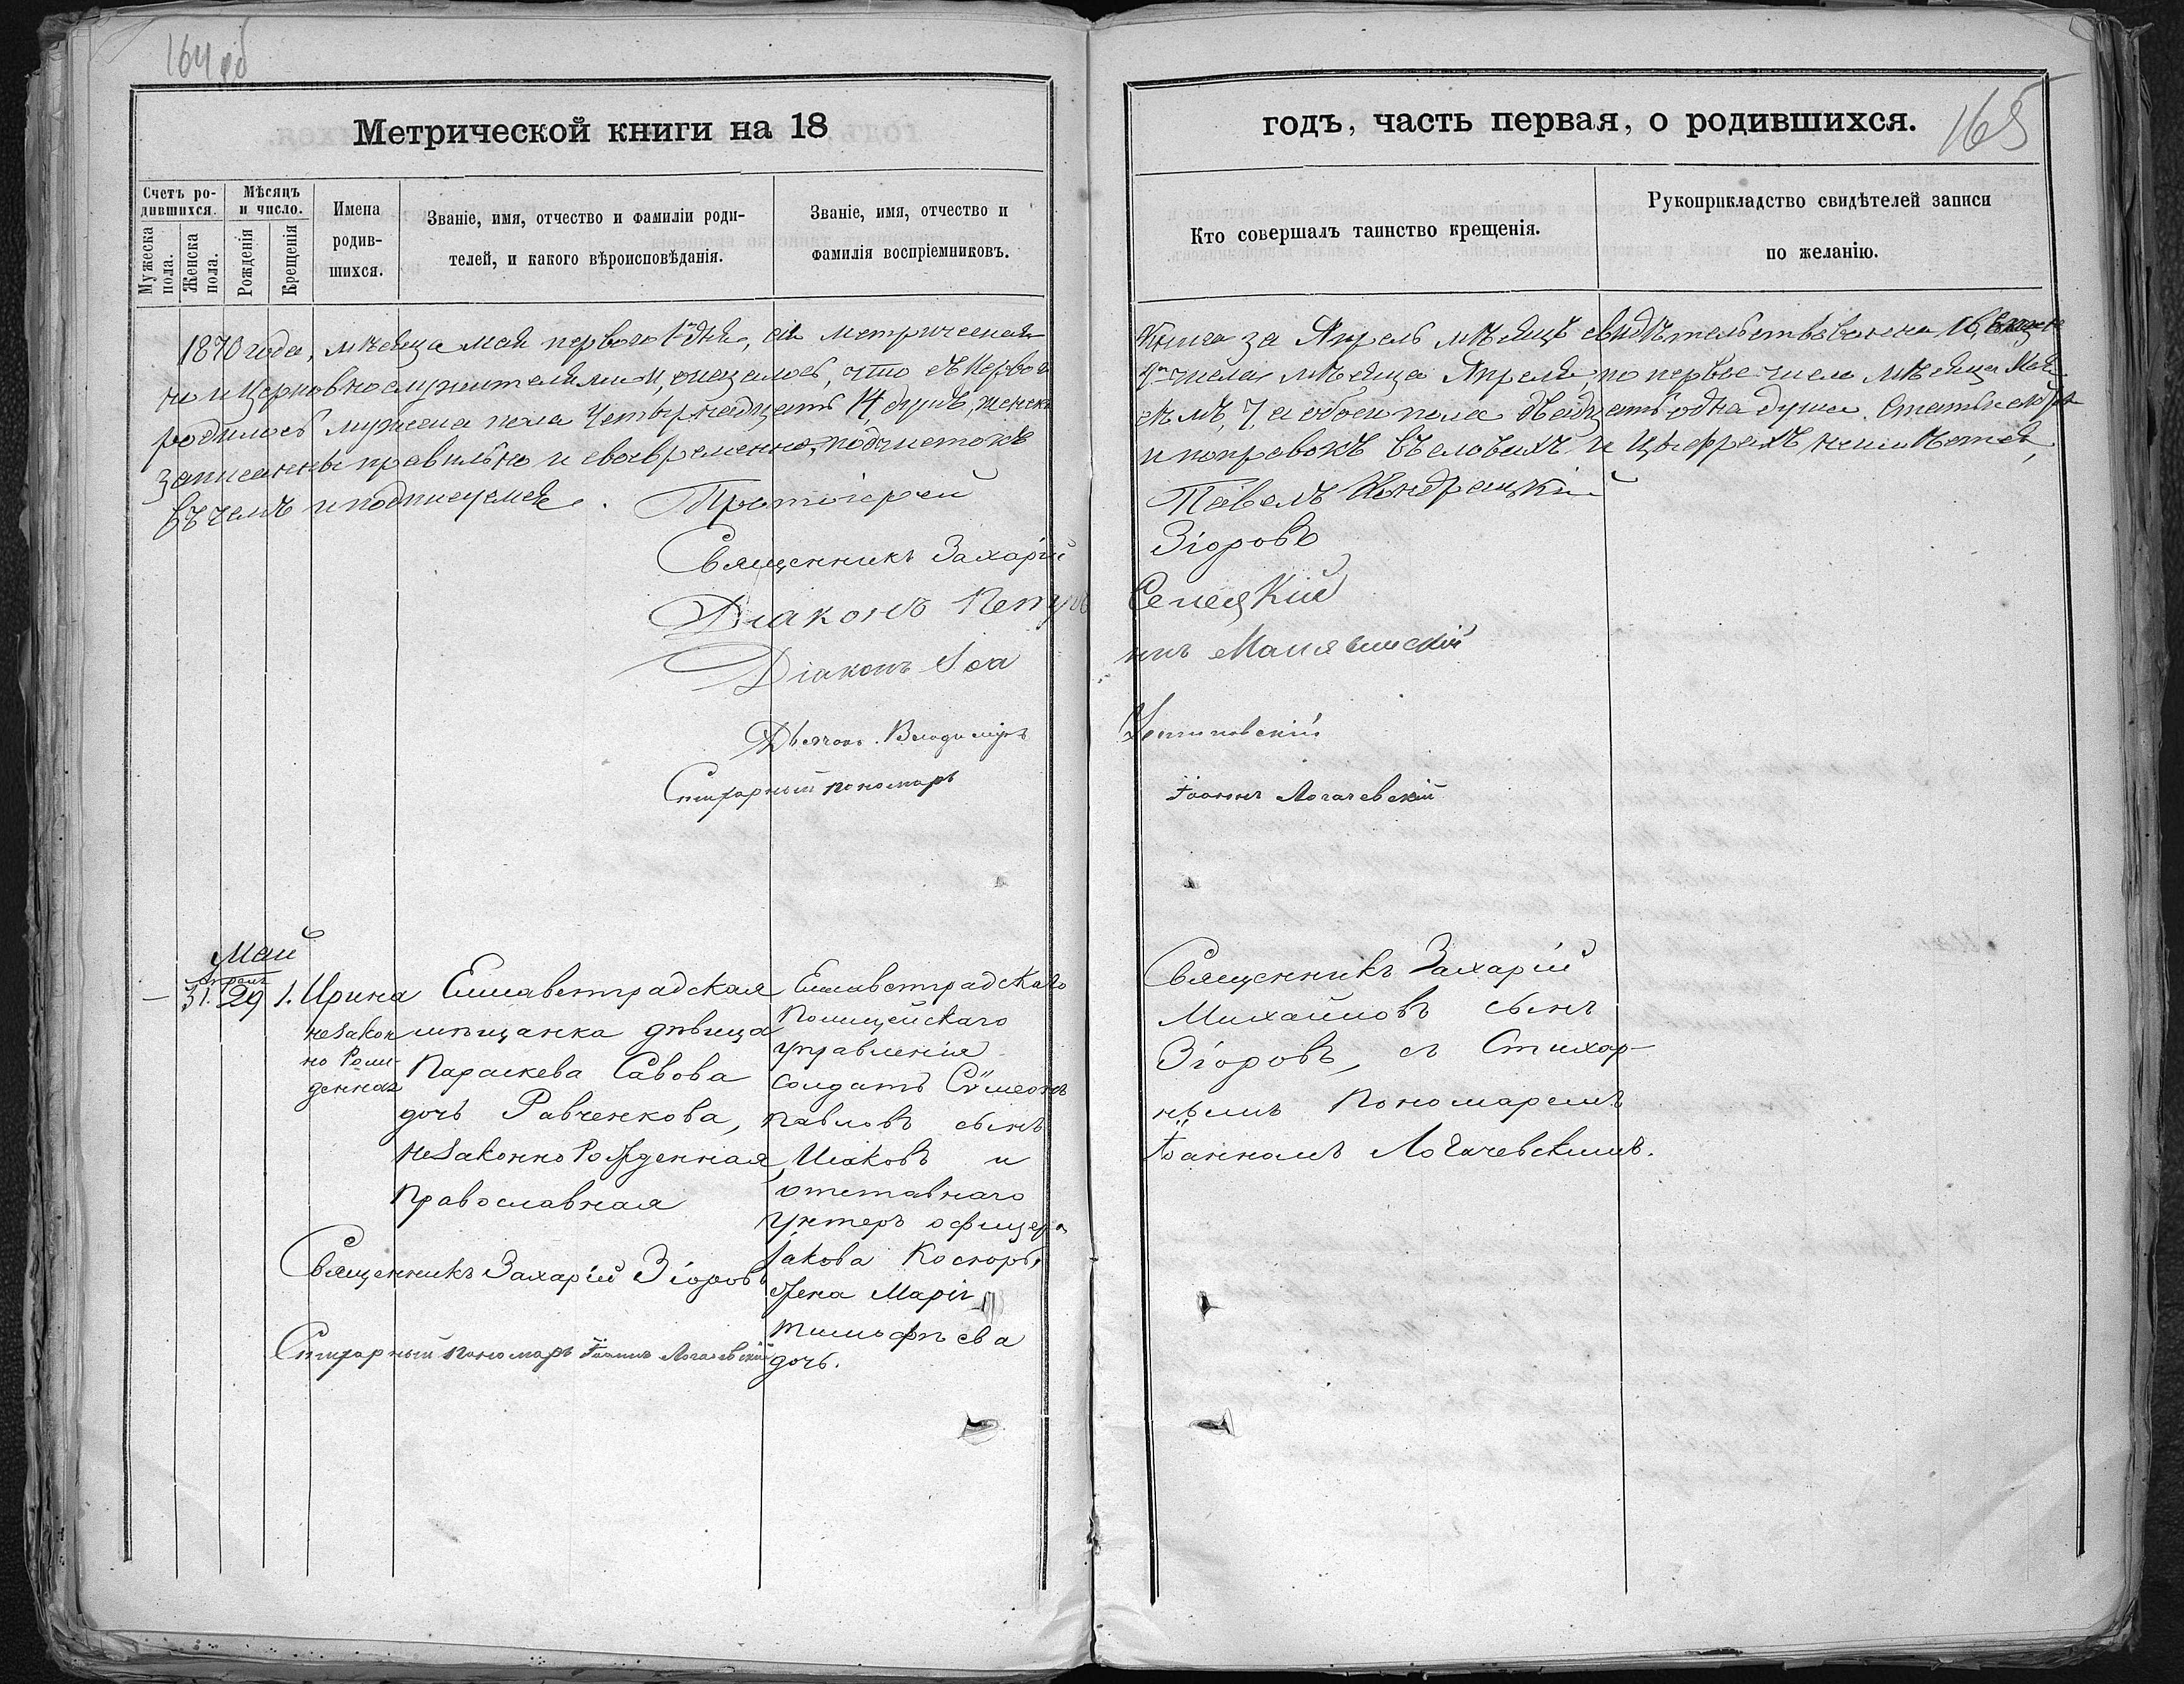 164 об
Метрической книги на 18
годъ, часть первая, о родившихся.
165
Счетъ ро-
дившихся.
Мужеска
пола.
Женска
пола.
Мѣсяцъ
и число.
Рожденія
Крещенія
Имена
родив-
шихся.
Званіе, имя, отчество и фамиліи роди-
телей, и какого вѣроисповѣданія.
Званіе, имя, отчество и
фамилія воспріемниковъ.
Кто совершалъ таинство крещенія.
Рукоприкладство свидѣтелей записи
по желанію.
1870 года, мѣсяца мая перваго 1 дня, сія метрическая книга за Апрель мѣсяцъ свидѣтельствована
и Церковнослужителями, оказалось, что съ перваго числа мѣсяца Апреля, по первое число мѣсяца Мая
родилось мужеска пола Четырнадцать 14 душъ, женск 7, а обоего пола двадцать одна душа. Статьи
записанны правильно и своевременно, подчистокъ и поправокъ въ словахъ и цыфрахъ неимѣется,
въ чемъ и подписуемся. Протоіерей Павелъ Кондрацкій
Священникъ Захарій Зіоровъ
Діаконъ Петръ Селецкій
Діаконъ Іоа
Дьячокъ Владиміръ
Стихарный пономарь Іоаннъ Логачевскій
Май
Апрель
— 31. 29 1. Ирина
незакон
но Рож
денная
Елисаветградская
мѣщанка дѣвица
Параскева Савова
дочь Равченкова,
незаконно Рожденная
православная
Елисаветградскаго
Полицейскаго
управленія
солдатъ Сѵмеонъ
Павловъ сынъ
Исаковъ и
отставнаго
унтеръ офицера
Іакова
жена Марія
тимофѣева
дочь.
Священникъ Захарій
Михайловъ сынъ
Зіоровъ, съ Стихар-
нымъ Пономаремъ
Іоанномъ Логачевскимъ.
Священникъ Захарій Зіоровъ
Стихарный пономарь Іоаннъ Логачевскій